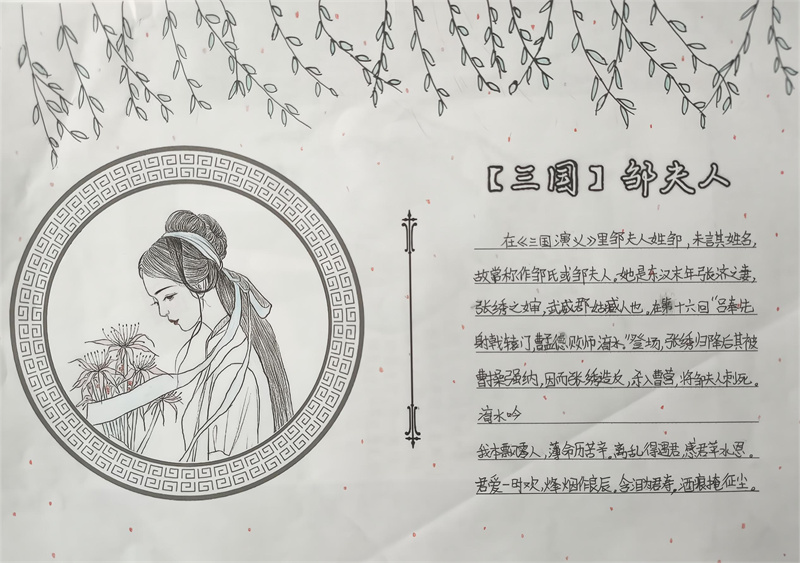 【三国】邹夫人
在《三国演义》里邹夫人姓邹，未言其姓名，
故常称作邹氏或邹夫人。她是东汉末年张济之妻，
张绣之婶，武威郡姑臧人也。在第十六回“吕奉先
射戟辕门，曹孟德败师淯水”登场，张绣归降后其被
曹操强纳，因而张绣造反，杀入曹营，将邹夫人刺死。
淯水吟
我本飘零人，薄命历苦辛。离乱得遇君，感君萍水恩。
君爱一时欢，烽烟作良辰。含泪为君寿，酒痕掩征尘。